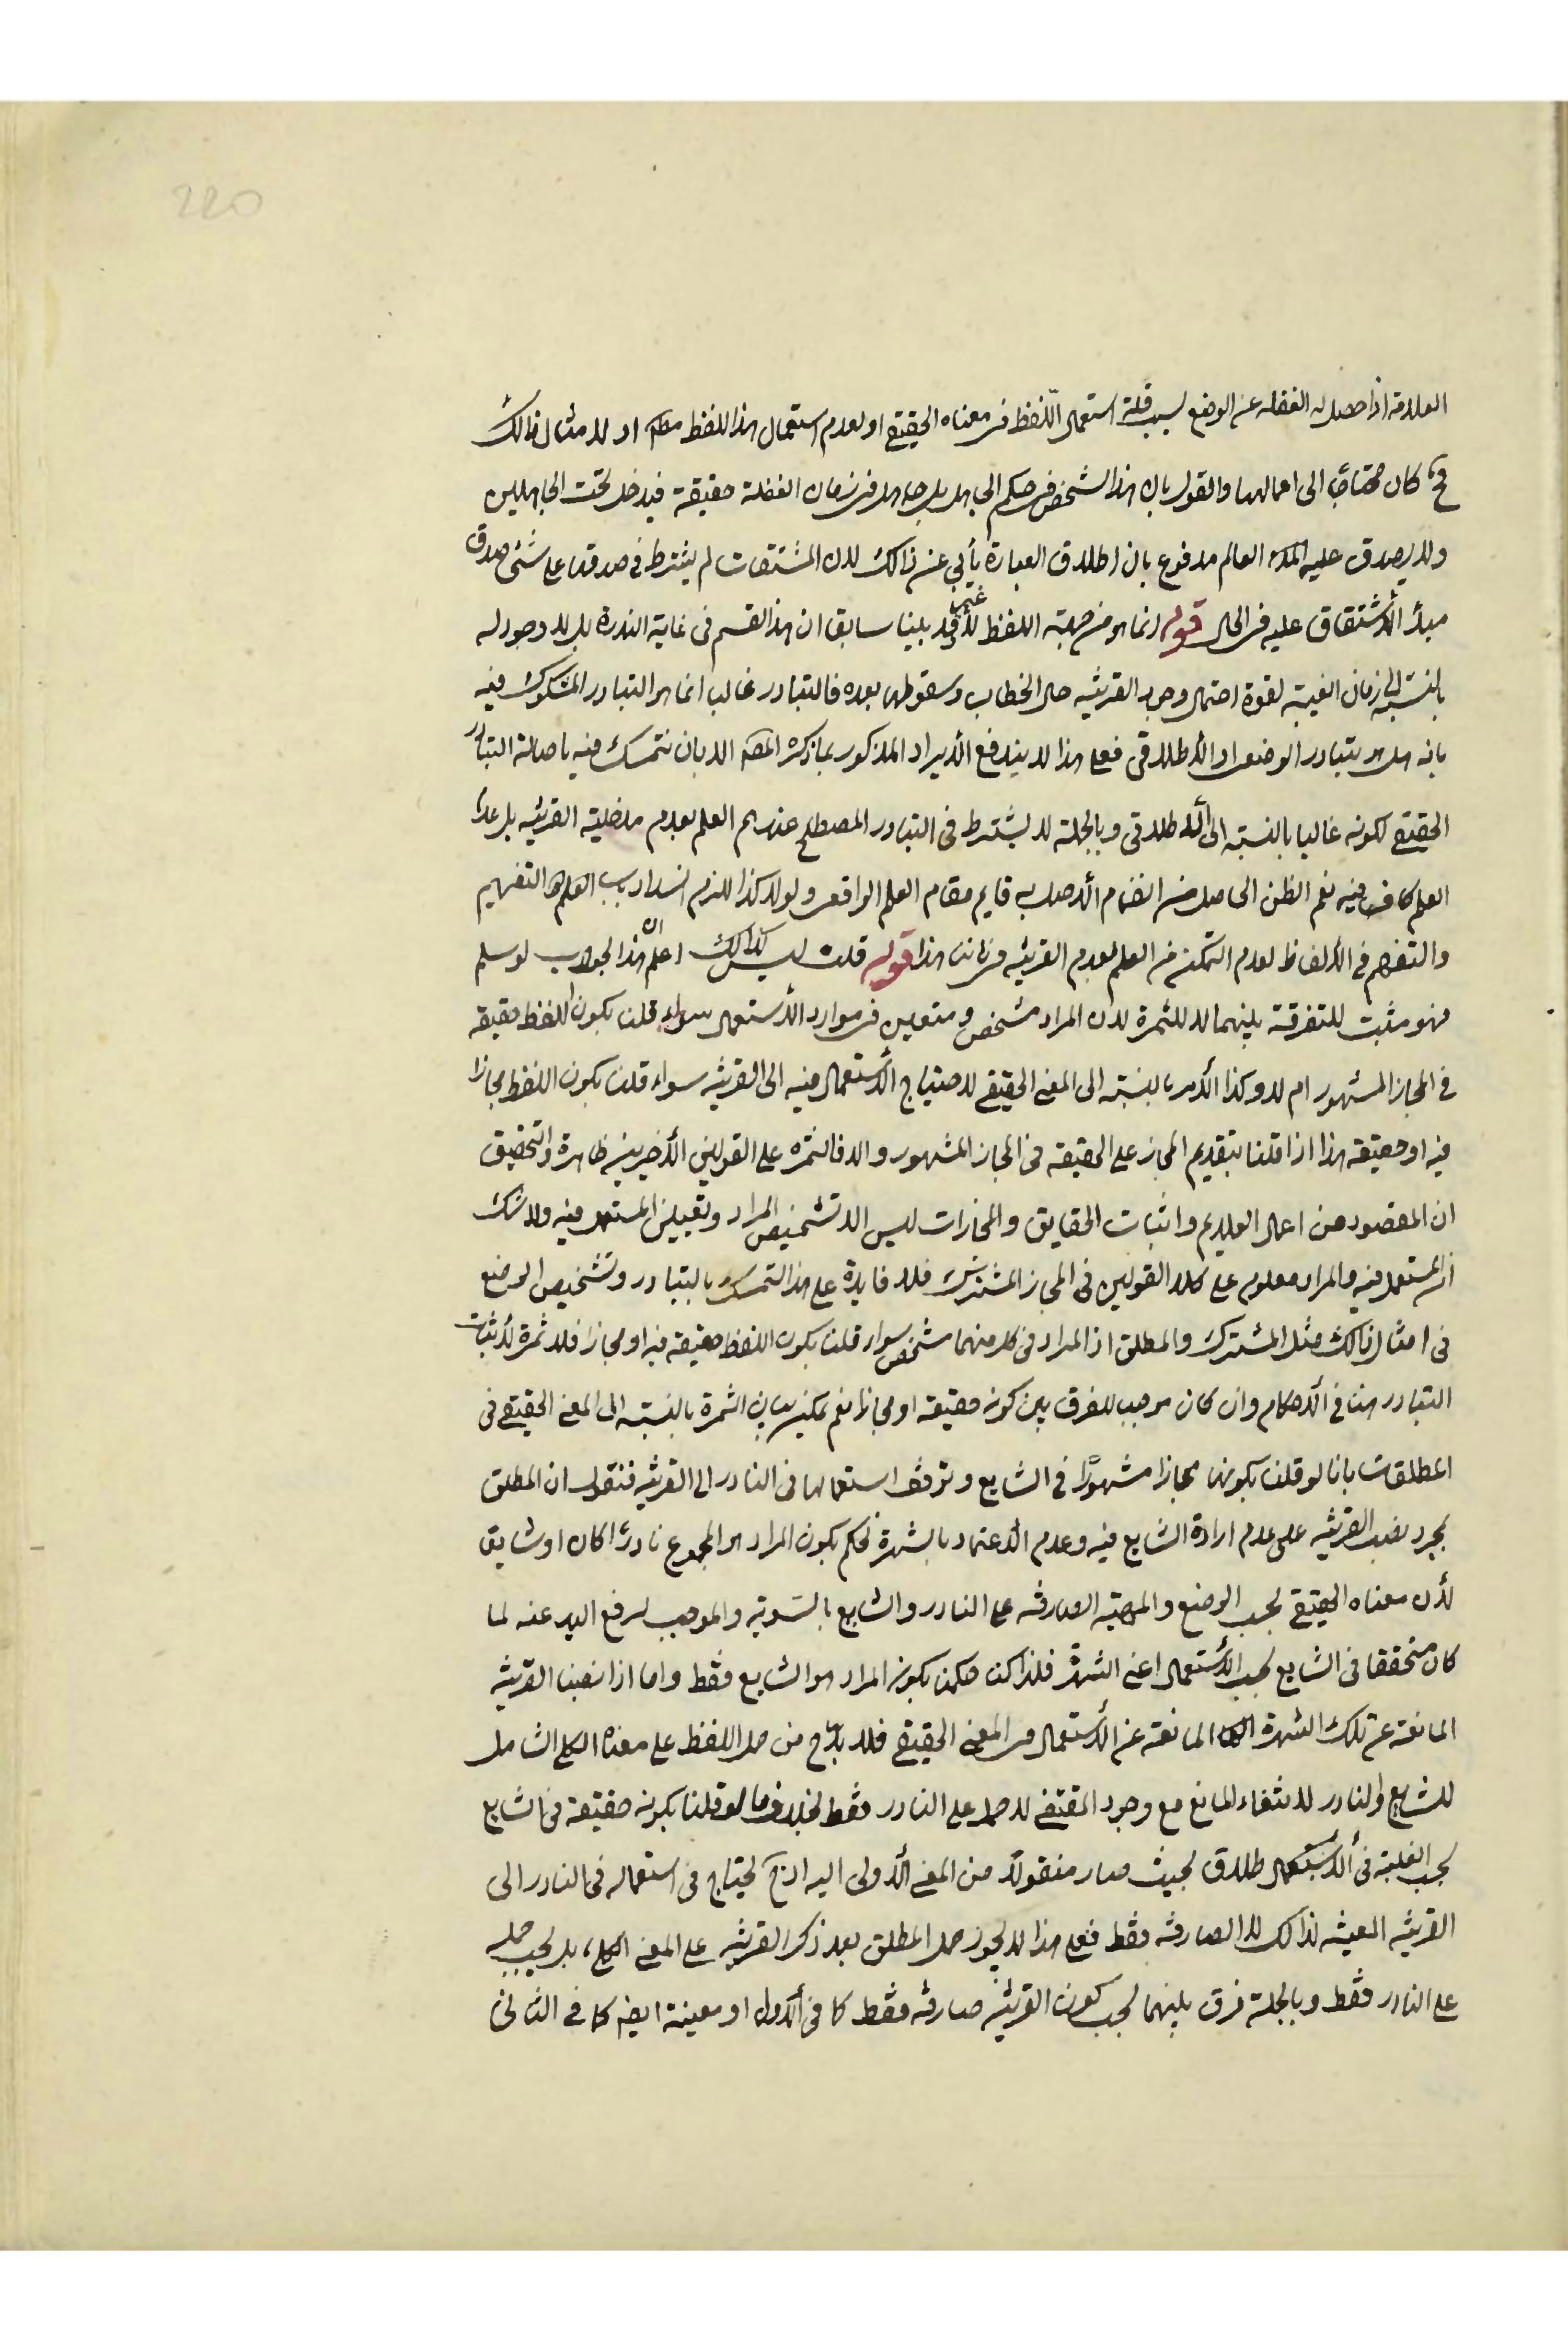 220
العلامة اذا حصل له الغفلة عن الوضع لسبب قلة استعمال اللّفظ فى معناه الحقيقى او لعدم استعمال هذا اللفظ مطلقا او لامثال ذالك
فح كان محتاجا الى اعمالها والقول بان هذا الشخص فى حكم الجاهل بل جاهل فى زمان الغفلة حقيقة فيدخل تحت الجاهلين
ولا يصدق عليه العالم مدفوع بان اطلاق العبارة يأبى عن ذالك لان المشتقات لم يشترط فى صدقها على شئ صدق
مبدأ الأشتقاق عليه فى الحال قوله انما هو من جهة اللفظ قد بينا سابقا ان هذا القسم فى غاية الندرة بل لا وجود له
بالنسبة الى زمان الغيبة لقوة احتمال وجود القرينة حال الخطاب وسقوطها بعده فالتبادر غالبا انما هو التبادر المشكوك فيه
بانه هل هو تبادر الوضعى او الأطلاقى فعلى هذا لا يندفع الأيراد المذكور بما ذكره المصه الا بان نتمسك فيه باصالة التبادر
الحقيقى لكونه غالبا بالنسبة الى الأطلاقى وبالجملة لا يشترط فى التبادر المصطلح عندهم العلم بعدم مدخلية القرينة بل عدم
العلم كاف فيه نعم الظن الحاصل من انضمام الأصل به قايم مقام العلم الواقعى ولولا كذا للزم انسداد باب العلم والتفهيم
والتفهم فى الألفاظ لعدم التمكن من العلم بعدم القرينة فى زماننا هذا قوله قلت ليس كذالك اعلم ان هذا الجواب لو سلم
فهو مثبت للتفرقة بينهما لا للثمرة لان المراد مشخص ومتعين فى موارد الأستعمال سواء قلنا بكون اللفظ حقيقة
فى المجاز المشهور ام لا وكذا الأمر بالنسبة الى المعنى الحقيقى لاحتياج الأستعمال فيه الى القرينة سواء قلنا بكون اللفظ مجازا
فيه او حقيقة هذا اذا قلنا بتقديم المجاز على الحقيقة فى المجاز المشهور والا فالثمرة على القولين الأخيرين ظاهرة والتحقيق
ان المقصود من اعمال العلايم واثبات الحقايق والمجازات ليس الا تشخيص المراد وتعيين المستعمل فيه ولا شك
ان المستعمل فيه والمراد معلوم على كلا القولين فى المجاز المشترك فلا فايدة على هذا التمسك بالتبادر وتشخيص الوضع
فى امثال ذالك مثل المشترك والمطلق اذ المراد فى كل منهما مشخص سواء قلنا بكون اللفظ حقيقة فيه او مجازا فلا ثمرة لأثبات
التبادر هنا فى الأحكام وان كان موجب للفرق بين كونه حقيقة او مجازا نعم يمكن بيان الثمرة بالنسبة الى المعنى الحقيقى فى
المطلقات بانا لو قلنا بكونها مجازا مشهورًا فى الشايع وتوقف استعمالها فى النادر الى القرينة فنقول ان المطلق
بمجرد نصب القرينة على عدم ارادة الشايع فيه وعدم الأعتماد بالشهرة نحكم بكون المراد هو المجموع نادرًا كان او شايعا
لأن معناه الحقيقى بحسب الوضع والمهية الصادقه على النادر والشايع بالسّوية والموجب لرفع اليد عنه لما
كان متحققا فى الشايع بحسب الأستعمال اعنى الشهرة فلذا كنا حكمنا بكونه المراد هو الشايع فقط واما اذا نصبنا القرينة
المانعة عن تلك الشهرة المانعة عن الأستعمال فى المعنى الحقيقى فلا بد ح من حمل اللفظ على معناه الكلى الشامل
للشايع والنادر لانتفاء المانع مع وجود المقتضى لا حمله على النادر فقط بخلاف ما لو قلنا بكونه حقيقة فى الشايع
بحسب الغلبة فى الأستعمال طلاق بحيث صار منقولًا من المعنى الأولى اليه اذ ح يحتاج فى استعماله فى النادر الى
القرينة المعينه لذالك لا الصارفه فقط فعلى هذا لا يجوز حمل المطلق بعد ذكر القرينة على المعنى الكلى بل يجب حمله
على النادر فقط وبالجملة فرق بينهما بحسب كون القرينة صارفه فقط كما فى الأول او معينة ايضا كما فى الثانى